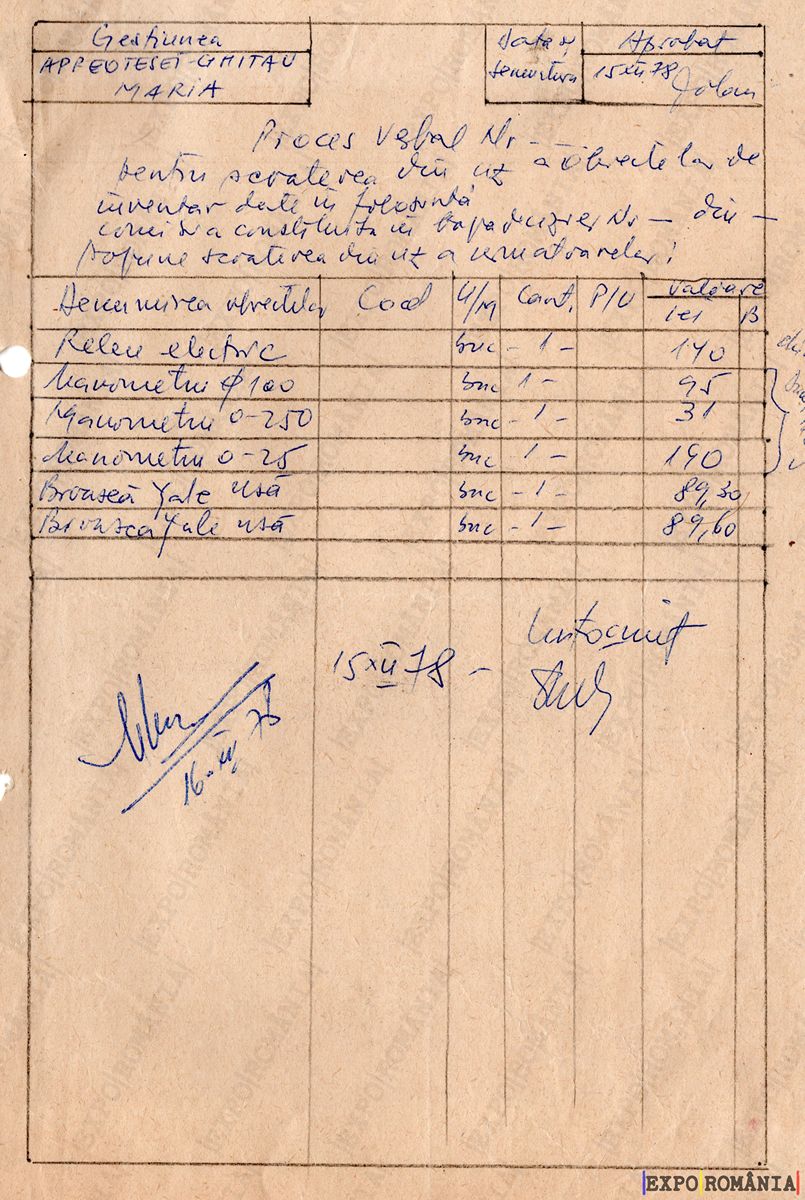 Gestiunea
MARIA
Data și Aprobat
semnătura 15 XII 78
Proces Verbal Nr —
pentru scoaterea din uz a obiectelor de
inventar date în folosință
comisia constituită în baza deciziei Nr — din —
propune scoaterea din uz a următoarelor:
Denumirea obiectelor Cod U/M Cant. P/U Valoare
lei B
Releu electric buc - 1 - 140
Manometru ϕ 100 buc 1 - 95
Manometru 0-250 buc - 1 - 31
Manometru 0-25 buc - 1 - 140
Broască Yale ușă buc - 1 - 89,30
Broască Yale ușă buc - 1 - 89,60
Întocmit
15 XII 78 -
16. XII 78
EXPO ROMÂNIA